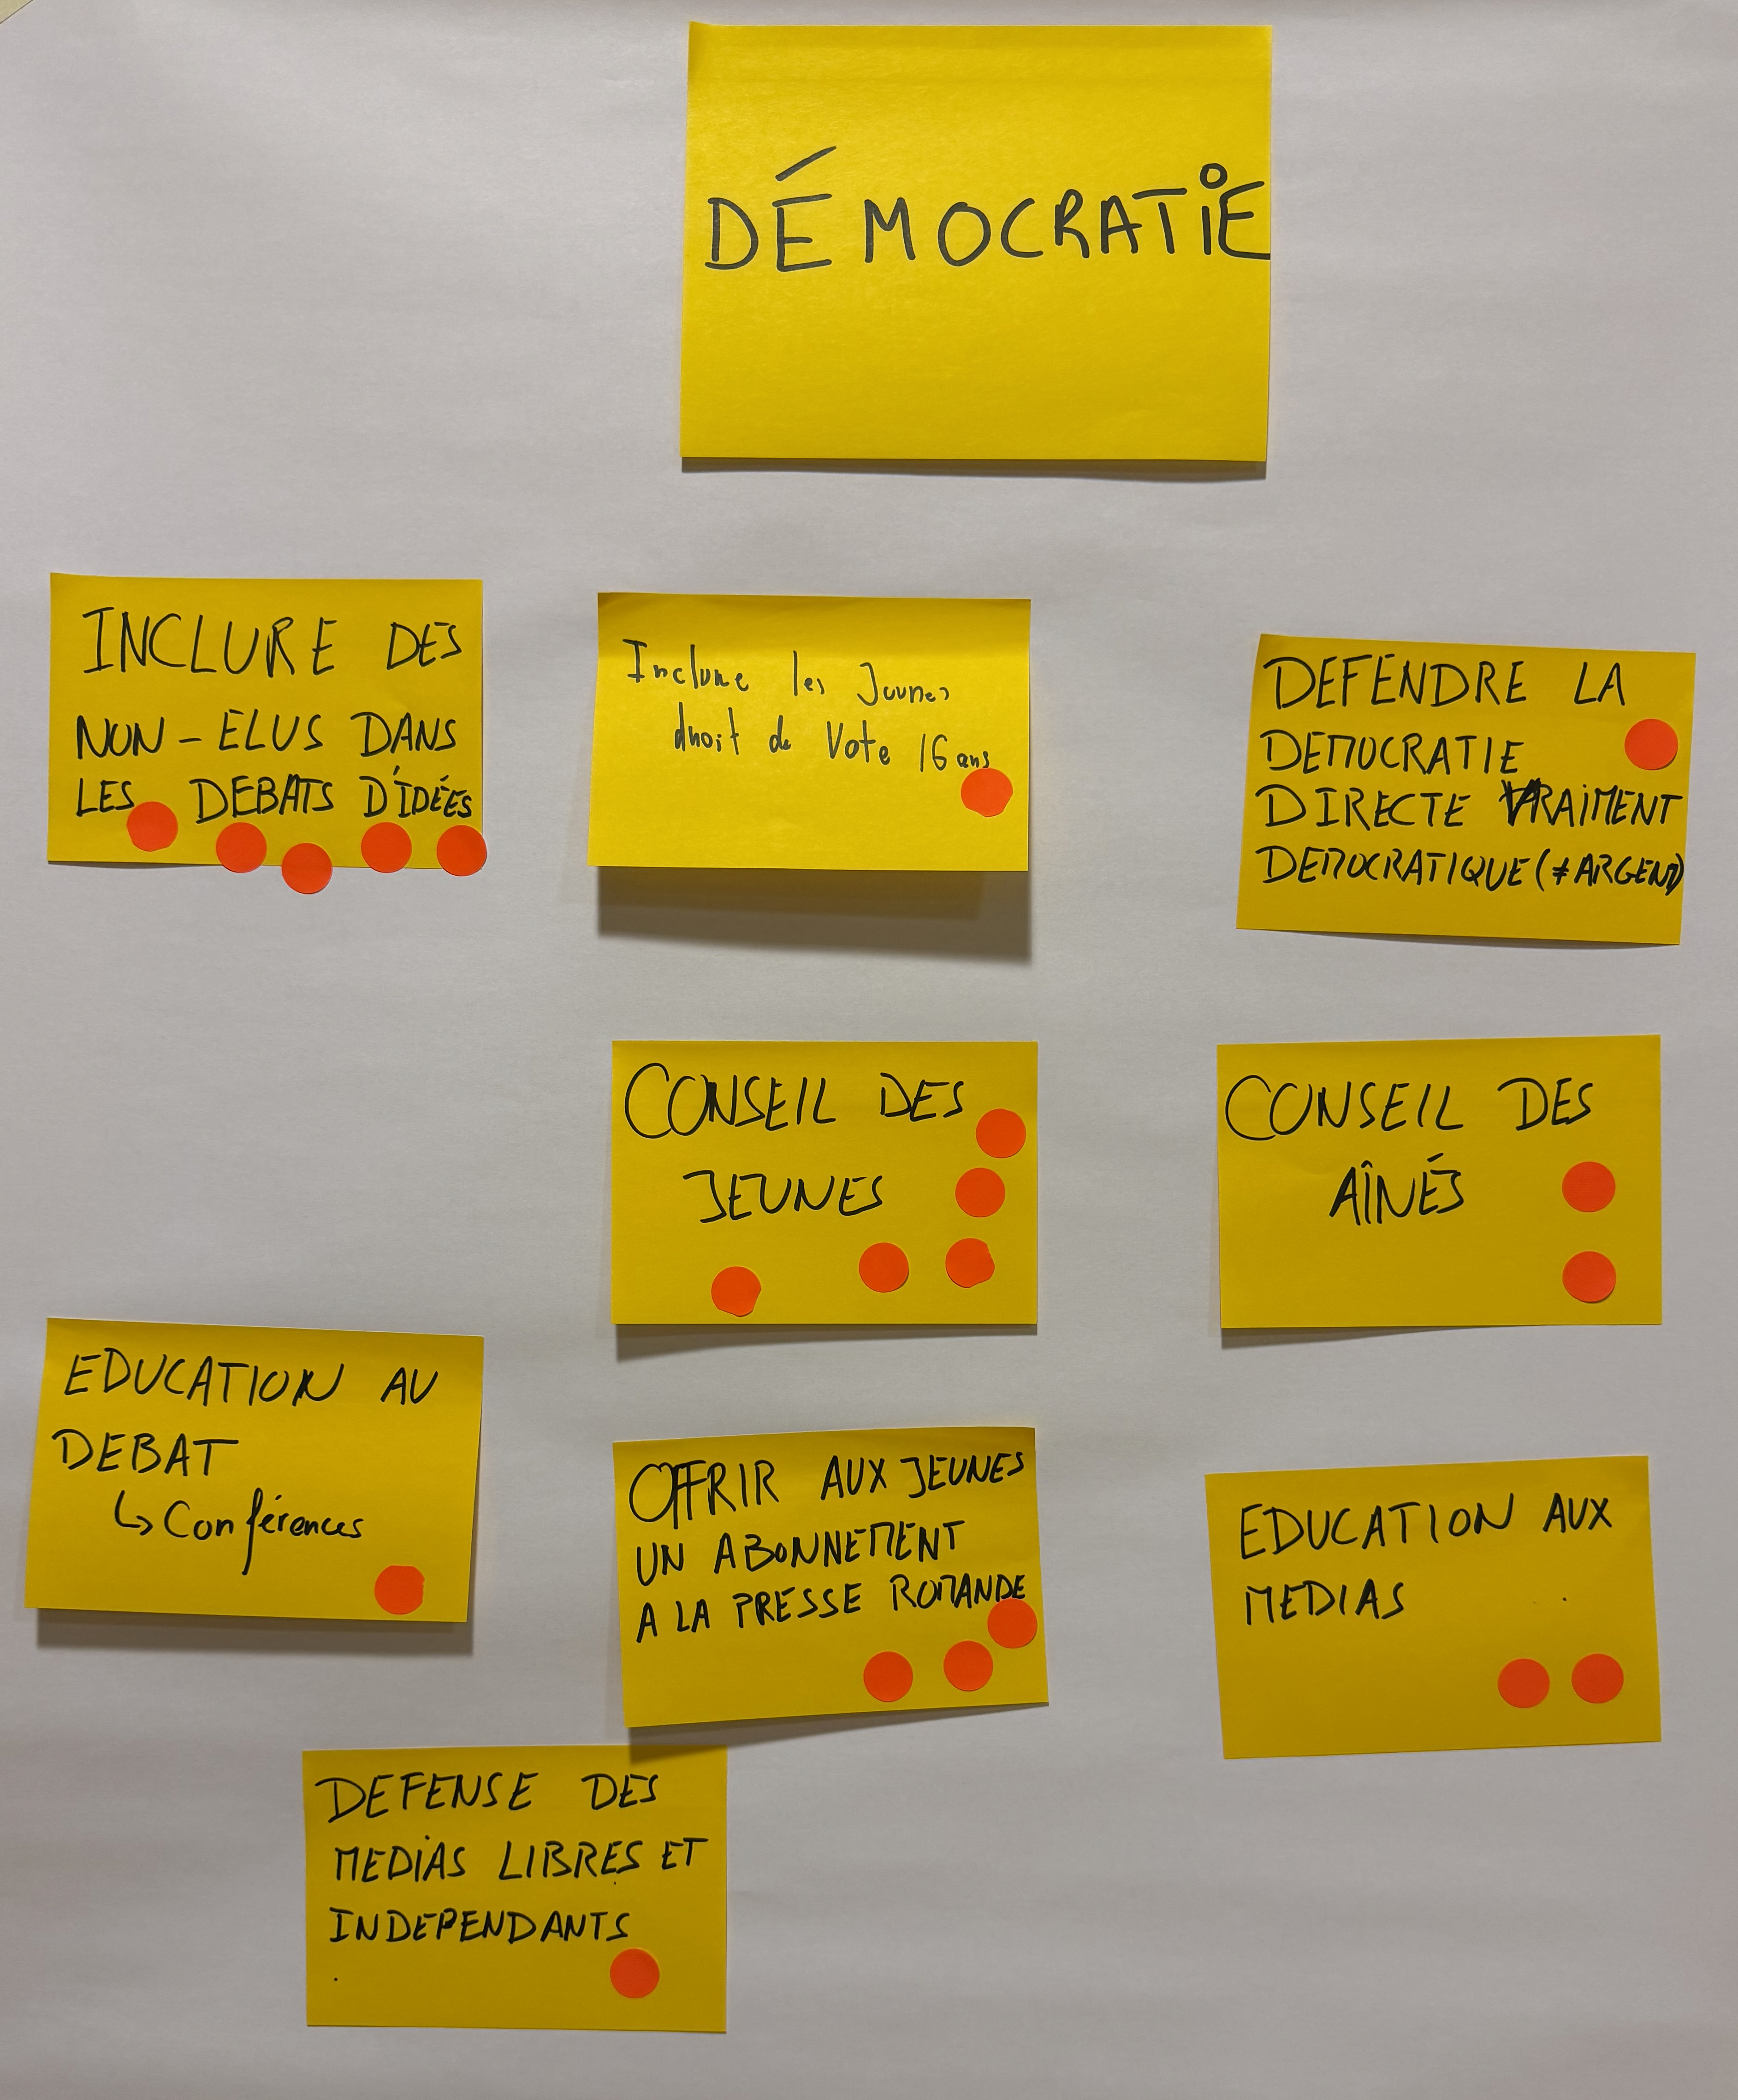 DÉMOCRATIE
INCLURE DES
NON-ELUS DANS
LES DEBATS D'IDÉES
Inclure les Jeunes
droit de Vote 16 ans
DEFENDRE LA
DEMOCRATIE
DIRECTE VRAIMENT
DEMOCRATIQUE (≠ ARGENT)
CONSEIL DES
JEUNES
CONSEIL DES
AÎNÉS
EDUCATION AU
DEBAT
↳ Conférences
OFFRIR AUX JEUNES
UN ABONNEMENT
A LA PRESSE ROMANDE
EDUCATION AUX
MEDIAS
DEFENSE DES
MEDIAS LIBRES ET
INDEPENDANTS